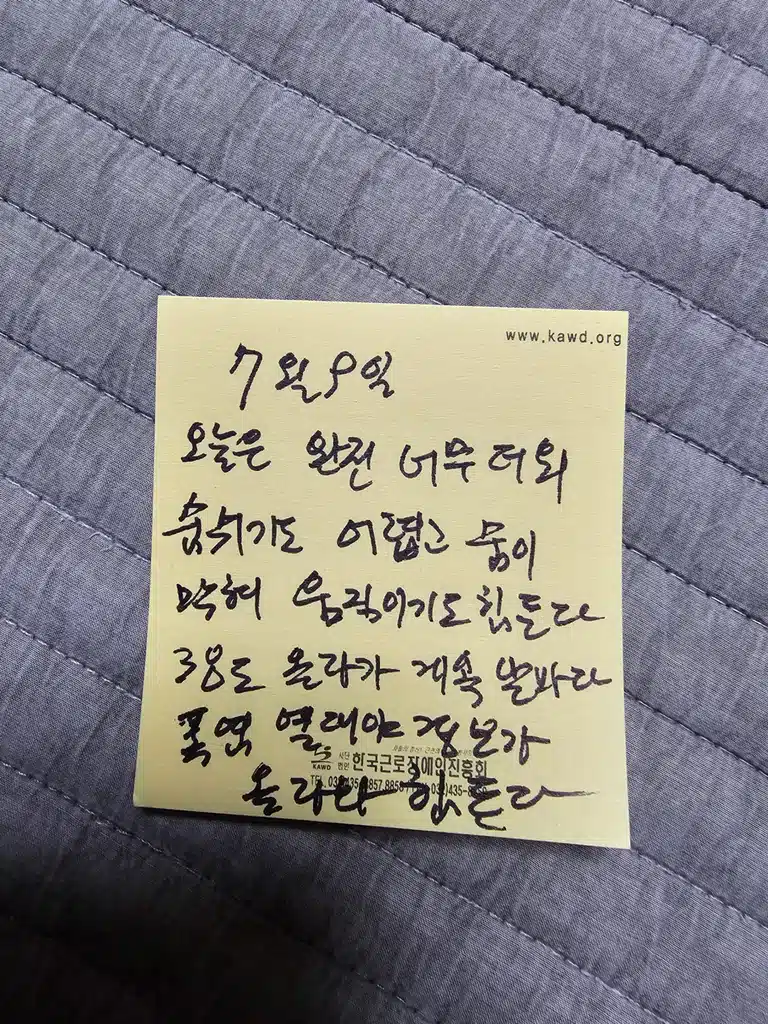 www.kawd.org
7월 9일
오늘은 완전 너무 더워
숨쉬기도 어렵고 숨이
막혀 움직이기도 힘든다
38도 올라가 계속
폭염 열대야 경보가
KAWD 사단법인 한국근로장애인진흥회
올라와 힘든다